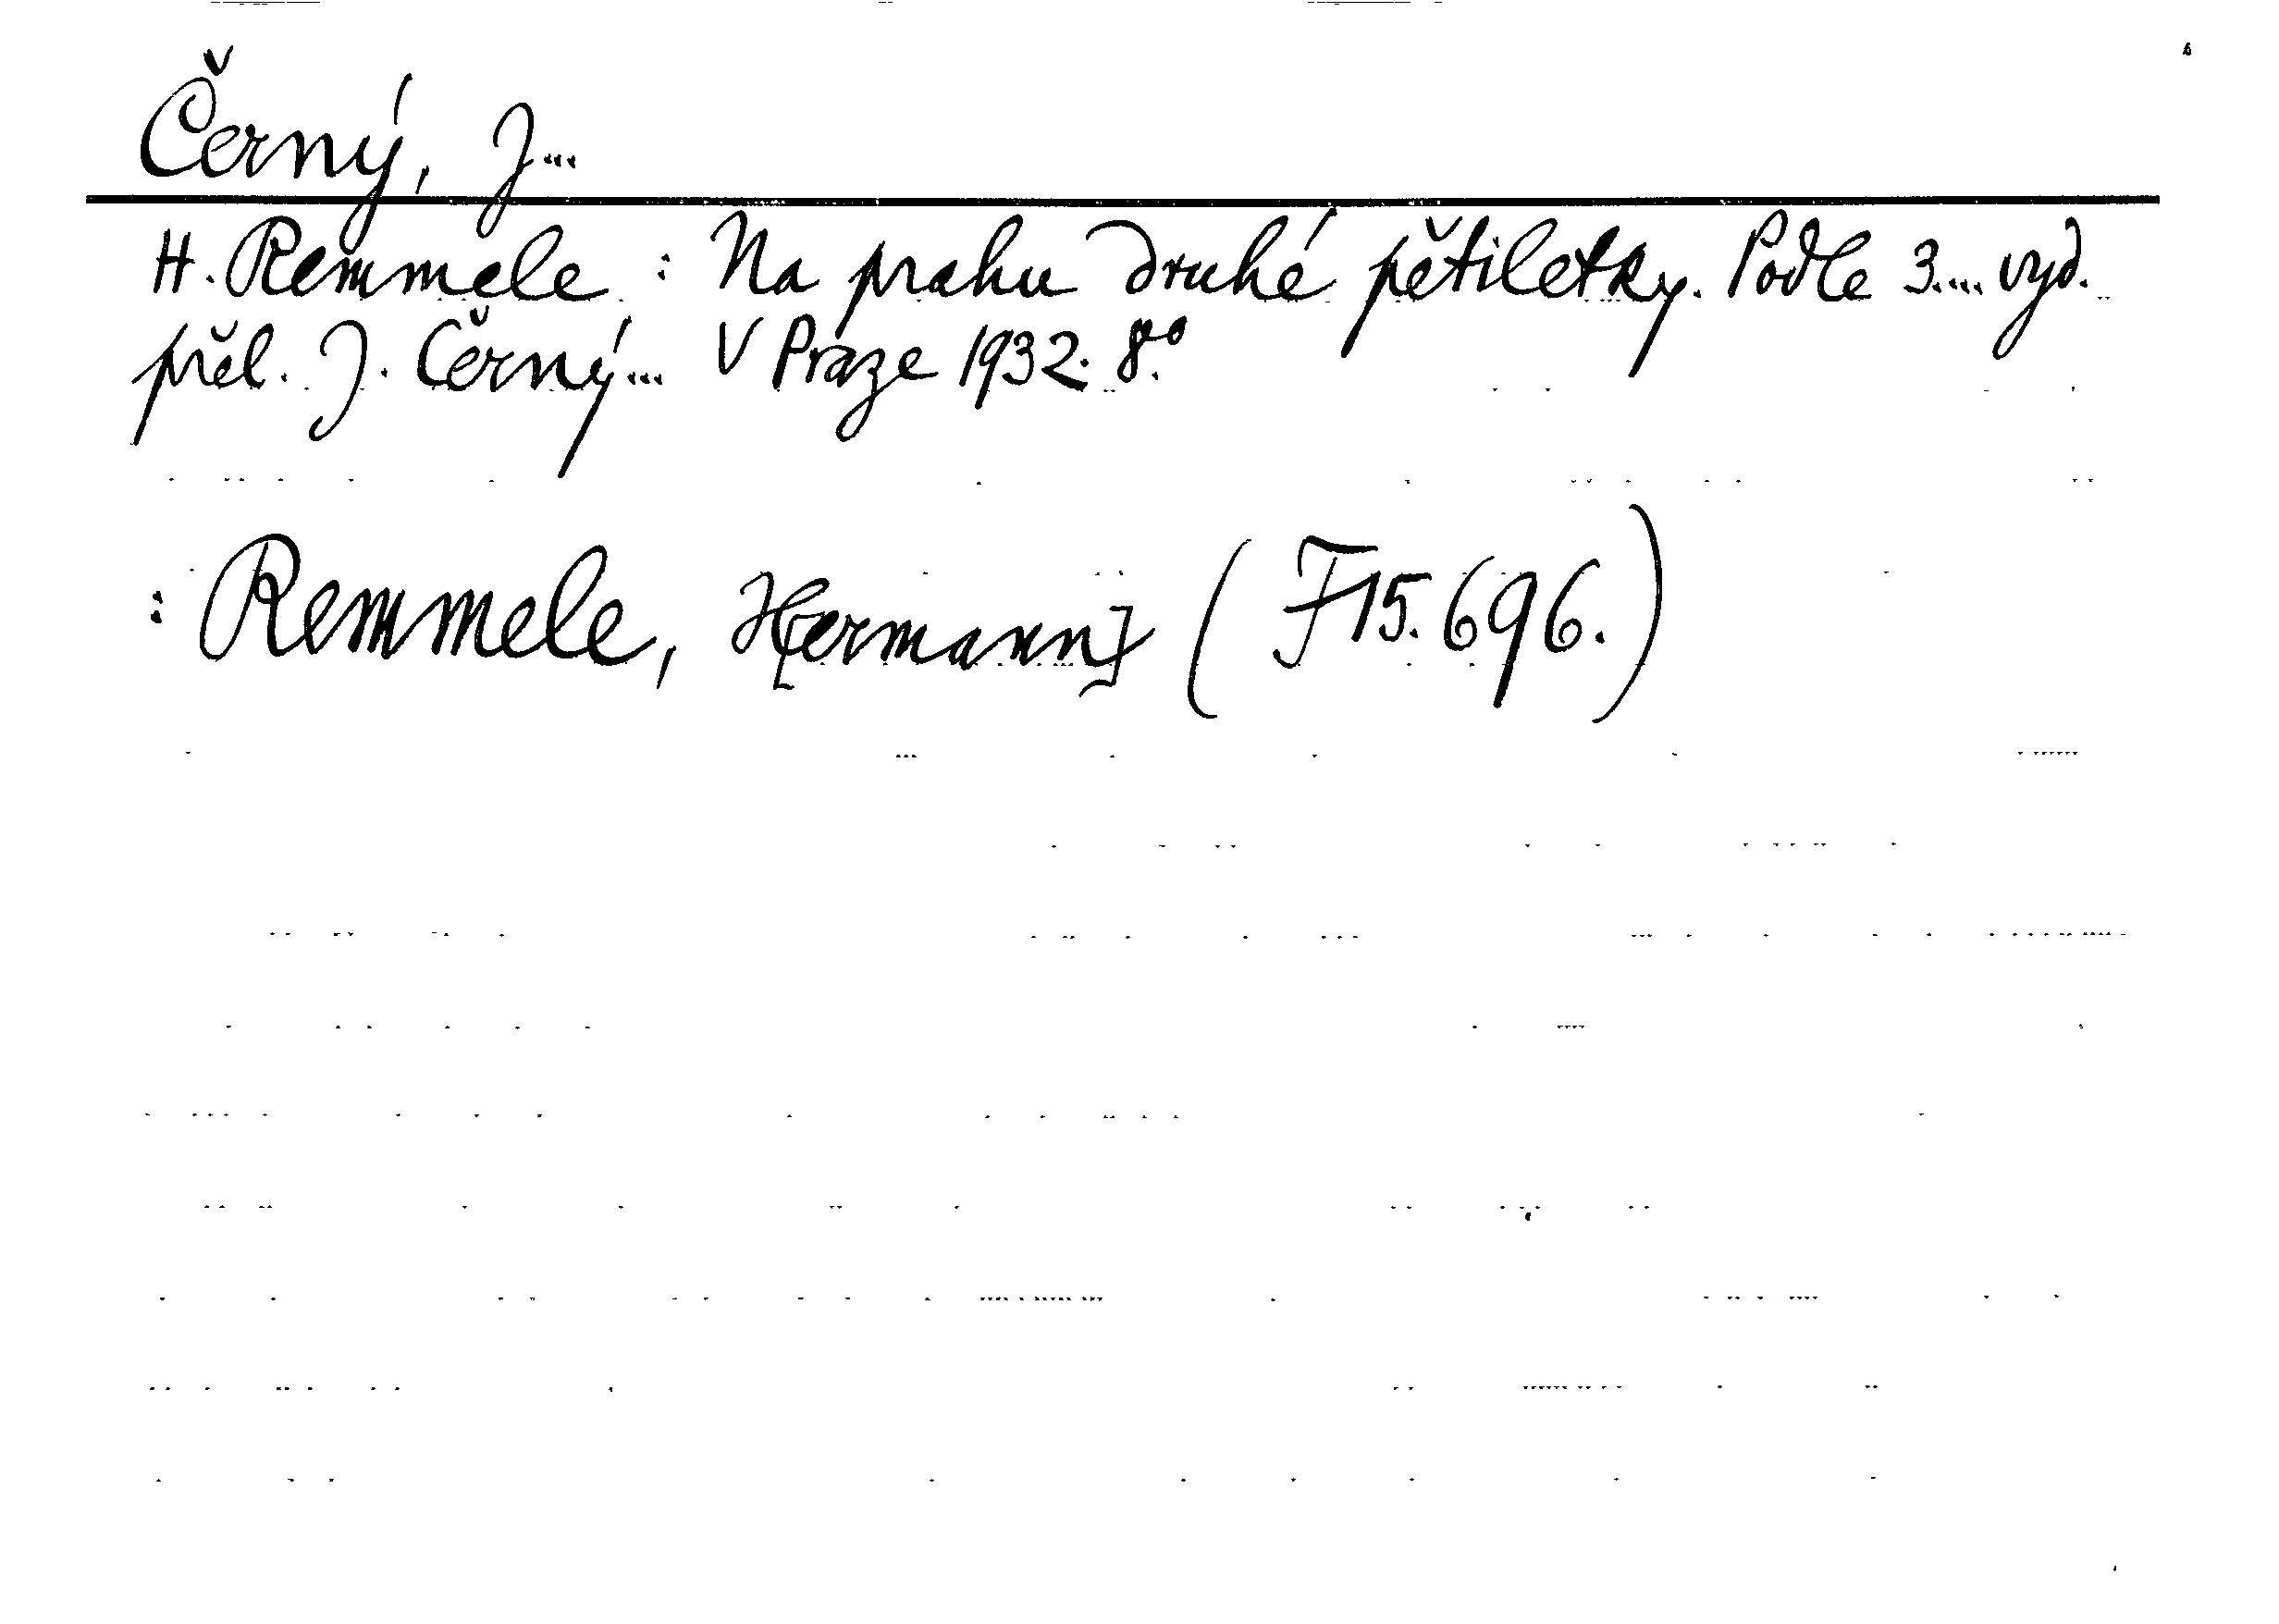 Černý, J...
H. Remmele : Na prahu druhé pětiletky. Podle 3.... vyd.
přel. J. Černý... V Praze 1932. 8.°
: Remmele, H[ermann] (F 15.696.)